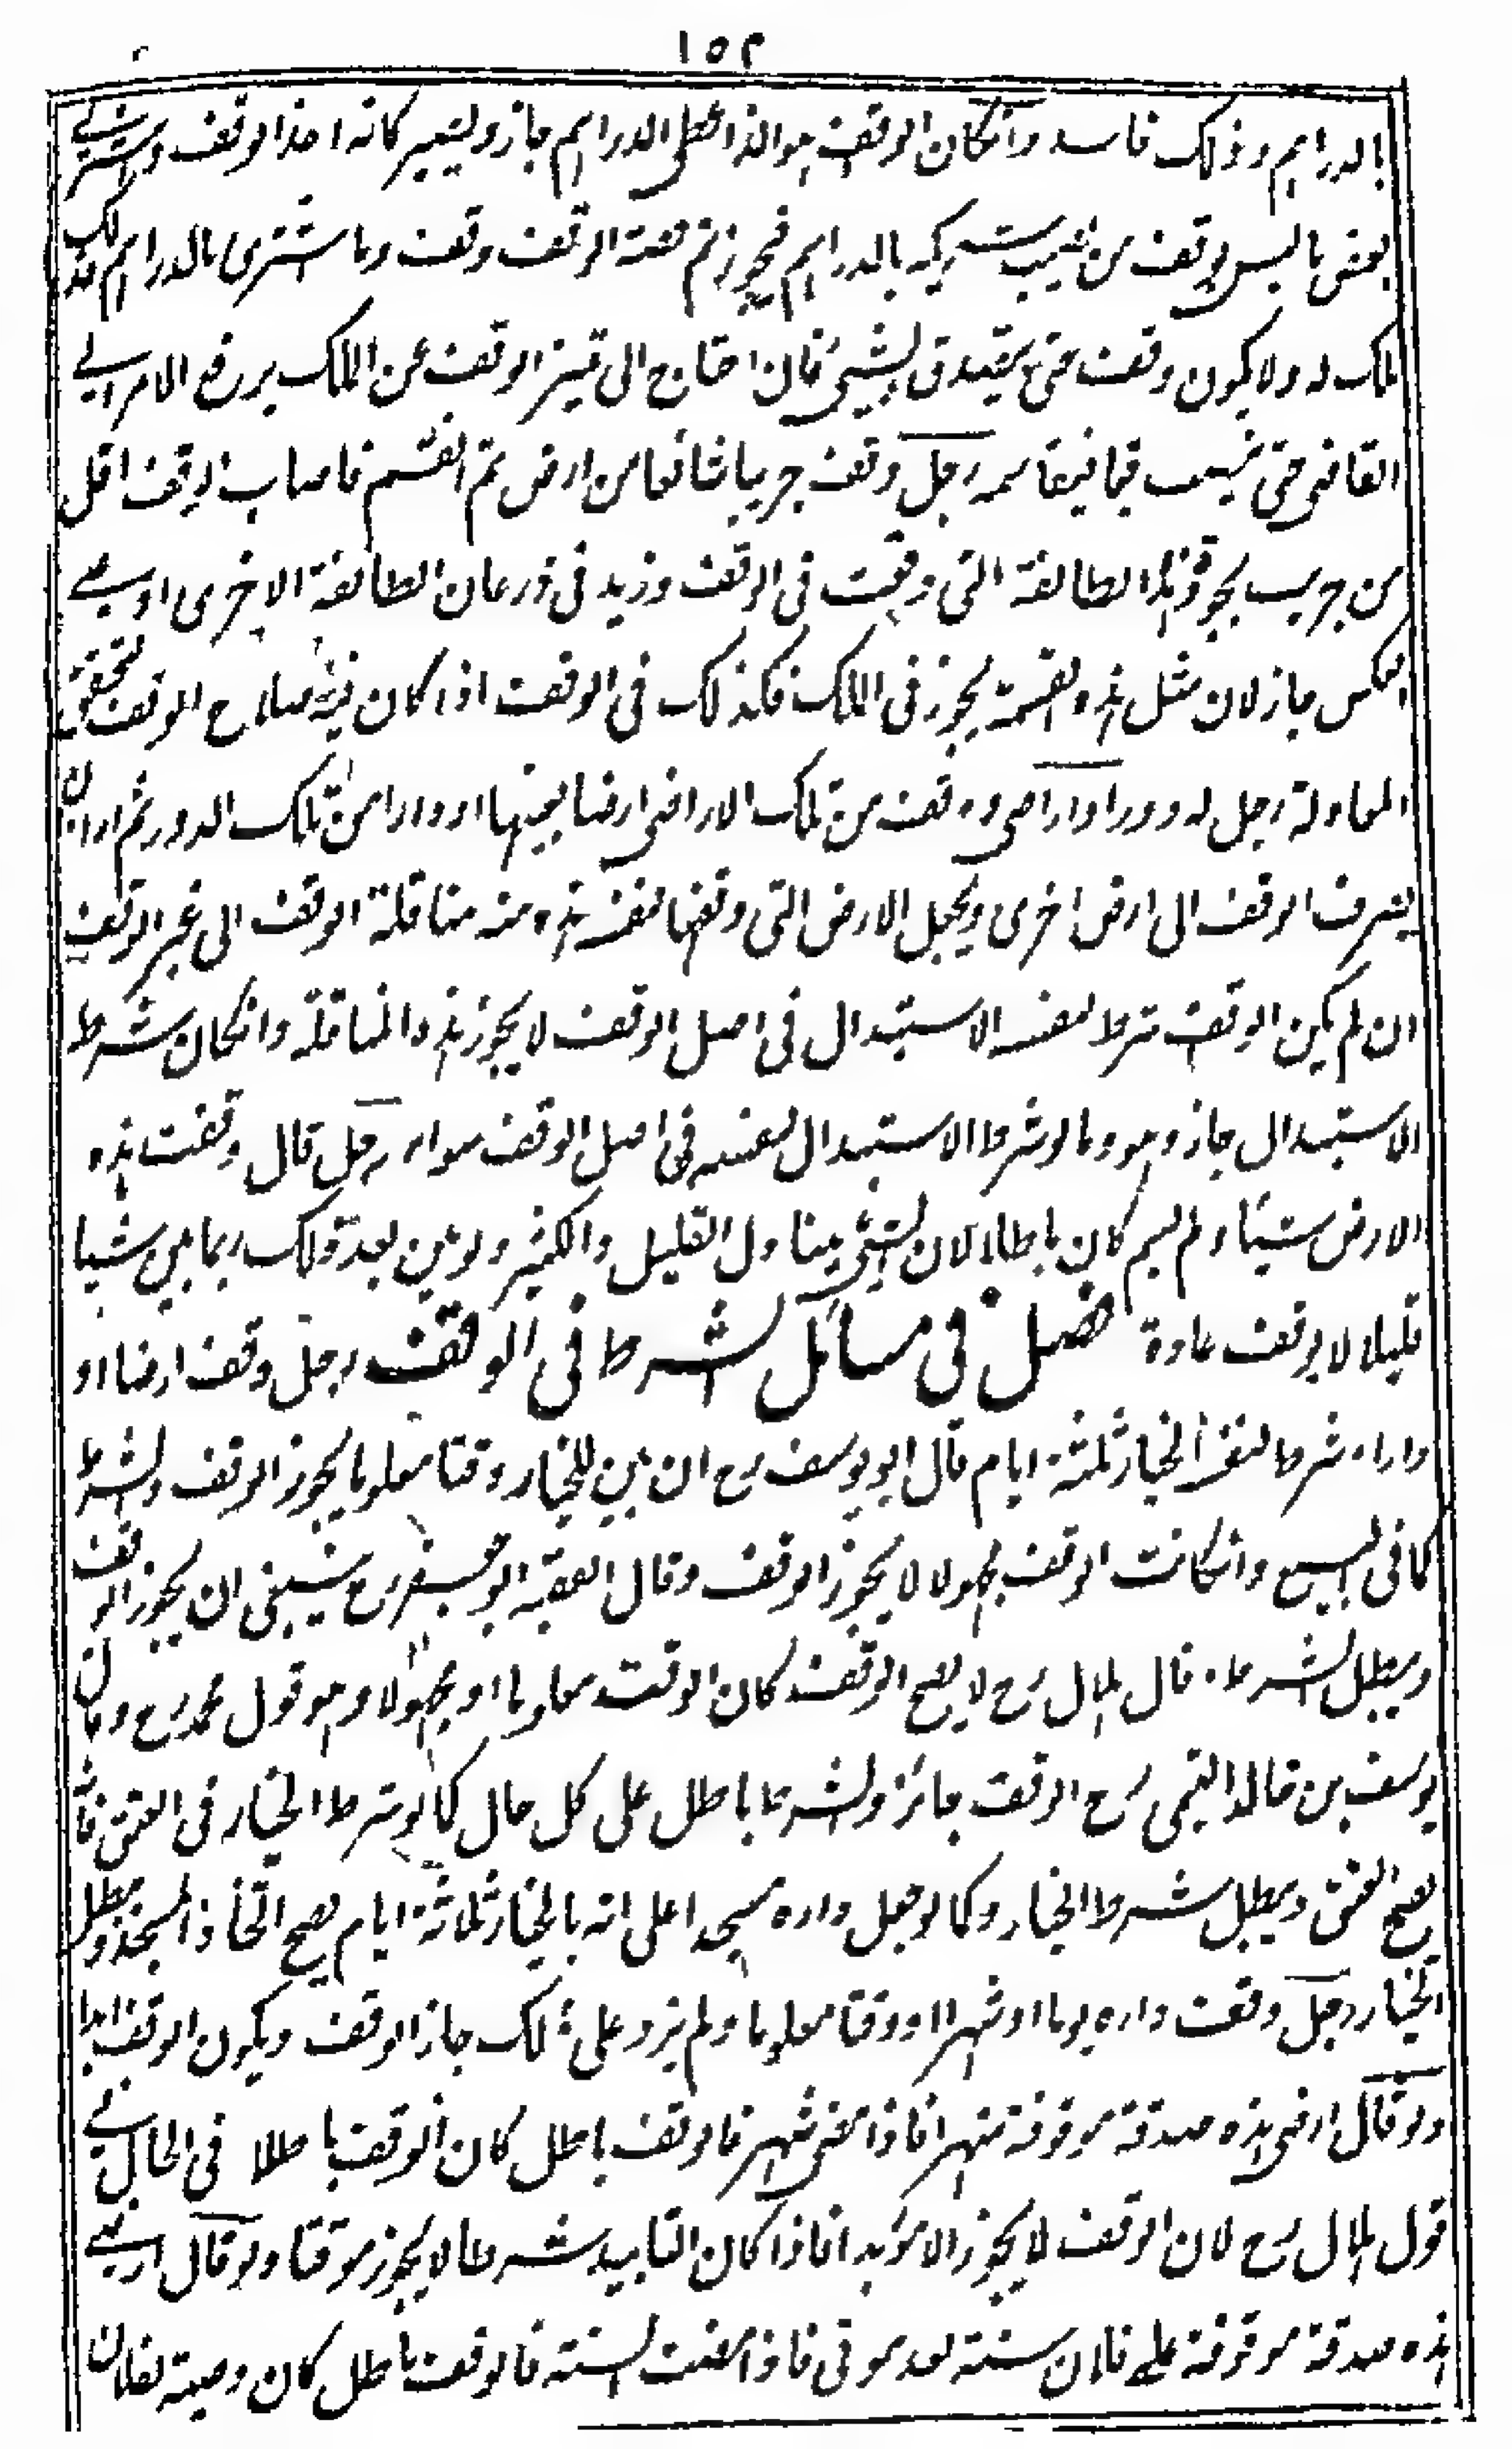 ١٥٢
بالدراهم وذلك فاسد وانكان الوقف هوالذى اعطى الدراهم جاز ويصير كانه اخذ الوقف واشترى
بعض ما ليس بوقف من نصيب شريكه بالدراهم فيجوز ثم حصة الوقف وقف وما اشترى بالدراهم فذلك
ملك له ولا يكون وقفا حتى فان احتاج الى تمييز الوقف عن الملك يرفع الامر الى
القاضى حتى ينصب قيما فيقاسمه رجل وقف جريبا شائعا من ارض ثم اقتسم فاصاب الوقف اقل
من جريب لجودة هذه الطائفة التى وقعت فى الوقف وزيد فى ذرعان الطائفة الاخرى او على
العكس جاز لان مثل هذه القسمة يجوز فى الملك فكذلك فى الوقف اذا كان فيه صلاح الوقف لتحقق
المعادلة رجل له دور او اراضى ووقف من تلك الاراضى ارضا بعينها او دارا من تلك الدور ثم اراد ان
يصرف الوقف الى ارض اخرى ويجعل الارض التى وقفها لنفسه هذه منه مناقلة الوقف الى غير الوقف
ان لم يكن الوقف شرط لنفسه الاستبدال فى اصل الوقف لا يجوز هذه المناقلة وانكان شرط
الاستبدال جاز وهو وما لو شرط الاستبدال لنفسه فى اصل الوقف سواء رجل قال وقفت هذه
الارض شيئا ولم يسم كان باطلا لان الشئ يتناول القليل والكثير ولو بين بعد ذلك ربما يبين شيئا
قليلا لا يوقف عادة فصل فى مسائل الشرط فى الوقف رجل وقف ارضا او
دارا وشرط لنفسه الخيار ثلثة ايام قال ابو يوسف رح ان بين للخيار وقتا معلوما يجوز الوقف والشرط
كما فى البيع وانكانت الوقف مجهولا لا يجوز الوقف وقال الفقيه ابو جعفر رح ينبغى ان يجوز الوقف
ويبطل الشرط وقال هلال رح لا يصح الوقف كان الوقت معلوما او مجهولا وهو قول محمد رح وقال
يوسف بن خالد التيمى رح الوقف جائز والشرط باطل على كل حال كما لو شرط الخيار فى العتق فانه
يصح العتق ويبطل شرط الخيار وكما لو جعل داره مسجدا على انه بالخيار ثلاثة ايام يصح اتخاذ المسجد ويبطل
الخيار رجل وقف داره يوما او شهرا او وقتا معلوما ولم يزد على ذلك جاز الوقف ويكون الوقف ابدا
ولو قال ارضى هذه صدقة موقوفة شهرا فاذا مضى شهر فالوقف باطل كان الوقف باطلا فى الحال فى
قول هلال رح لان الوقف لا يجوز الا مؤبدا فاذا كان التابيد شرطا لا يجوز موقتا ولو قال ارضى
هذه صدقة موقوفة على فلان سنة بعد موتى فاذا مضت السنة فالوقف باطل كان وصية لفلان